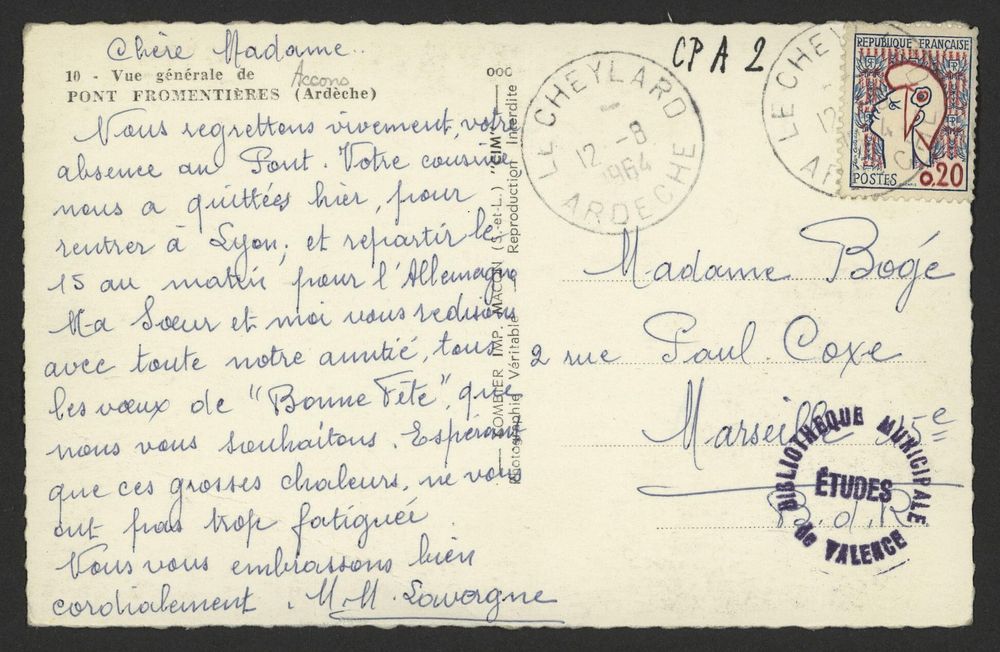 Chère Madame..
10 - Vue générale de
Accons
PONT FROMENTIÈRES (Ardèche)
Nous regrettons vivement, votre
absence au Pont. Votre cousine
nous a quittées hier, pour
rentrer à Lyon, et repartir le
15 au matin pour l'Allemagne
Ma Sœur et moi vous redisons
avec toute notre amitié, tous
les vœux de "Bonne Fête", que
nous vous souhaitons. Espérant
que ces grosses chaleurs, ne vous
ont pas trop fatiguée.
Nous vous embrassons bien
cordialement. M.M. Lavargne
COMBIER IMP. MACON (S.-et-L.) "CIM"
Photographie Véritable Reproduction Interdite
CPA 2
LE CHEYLARD
12 -8
1964
ARDECHE
LE CHEYLARD
12
ARDECHE
REPUBLIQUE FRANÇAISE
POSTES 0,20
Madame Bogé
2 rue Paul Coxe
Marseille 15e
B.d.R.
BIBLIOTHEQUE MUNICIPALE
ÉTUDES
de VALENCE